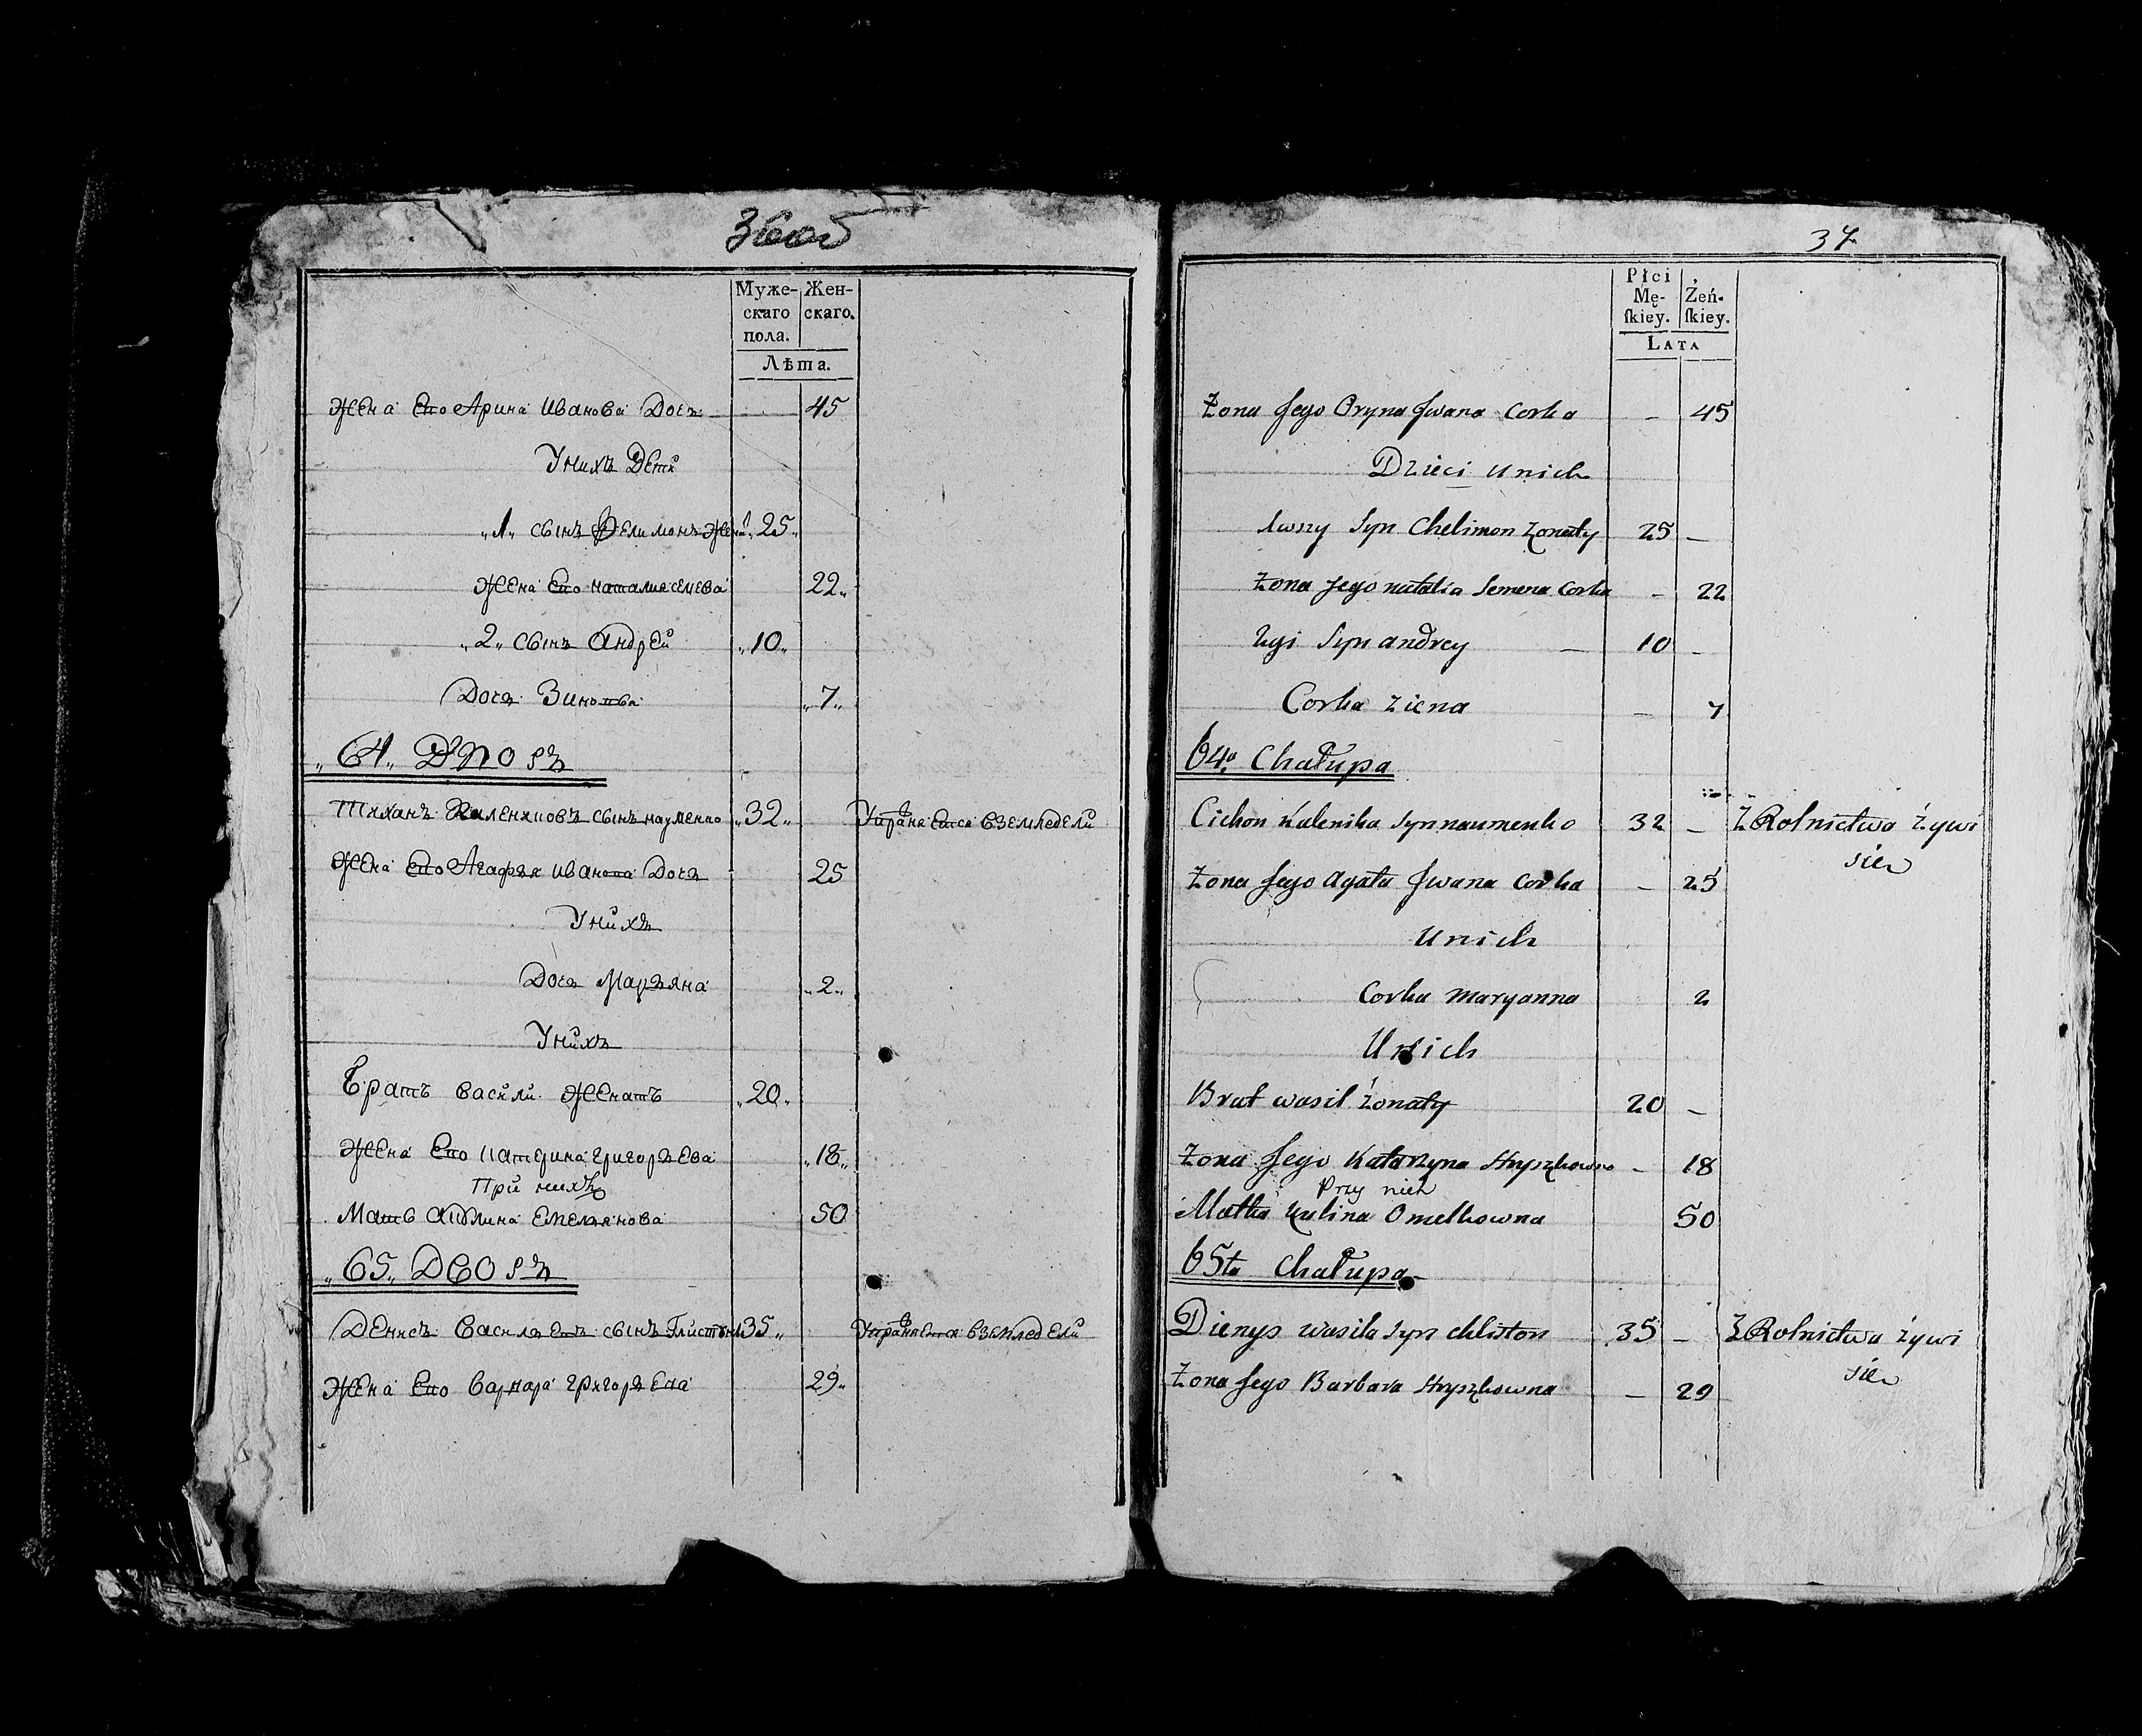 36 об
Муже- Жен-
скаго скаго.
пола.
Лѣта.
Жена Его Арина Иванова Дочъ 45
У нихъ Дети
„1„ сынъ Фелимонъ Жена „25„
Жена Его наталия семева 22„
„2„ сынъ Андрей „10„
Дочъ „7„
„64„ Дворъ
Тиханъ Калениковъ сынъ науменко „32„ Упражняется в земледели
Жена Его Агафъя Иванова Дочъ 25
У нихъ
Дочъ Маръяна „2„
У нихъ
Братъ Васили Женатъ „20„
Жена Его катерина григоръева „18„
При нихъ
Мать Акулина Емелъянова 50
„65„ Дворъ
Денисъ Василъевъ сынъ 35„ Упражняется в земледели
Жена Его Варвара григоръева 29„
37
Płci
Mę- Żeń-
ſkiey. ſkiey.
Lata
Żona Jego Oryna Jwana Corka – 45
Dzieci u nich
1wszy Syn Chelimon Żonaty 25 –
Żona Jego natalia Semena Corka – 22
2gi Syn andrey – 10 –
Corka Ziena – 7
64a Chałupa
Cichon Kalenika Syn naumenko 32 – Z Rolnictwa żywi
sien
Żona Jego Agata Jwana Corka – 25
U nich
Corka Maryanna 2
U nich
Brat wasil Żonaty 20 –
Żona Jego Katarzyna Hryszkowna – 18
Przy nich
Matka Kulina Omelkowna 50
65ta Chałupa
Dienys wasila Syn chliston 35 – Z Rolnictwa żywi
sien
Żona Jego Barbara Hryszkowna – 29